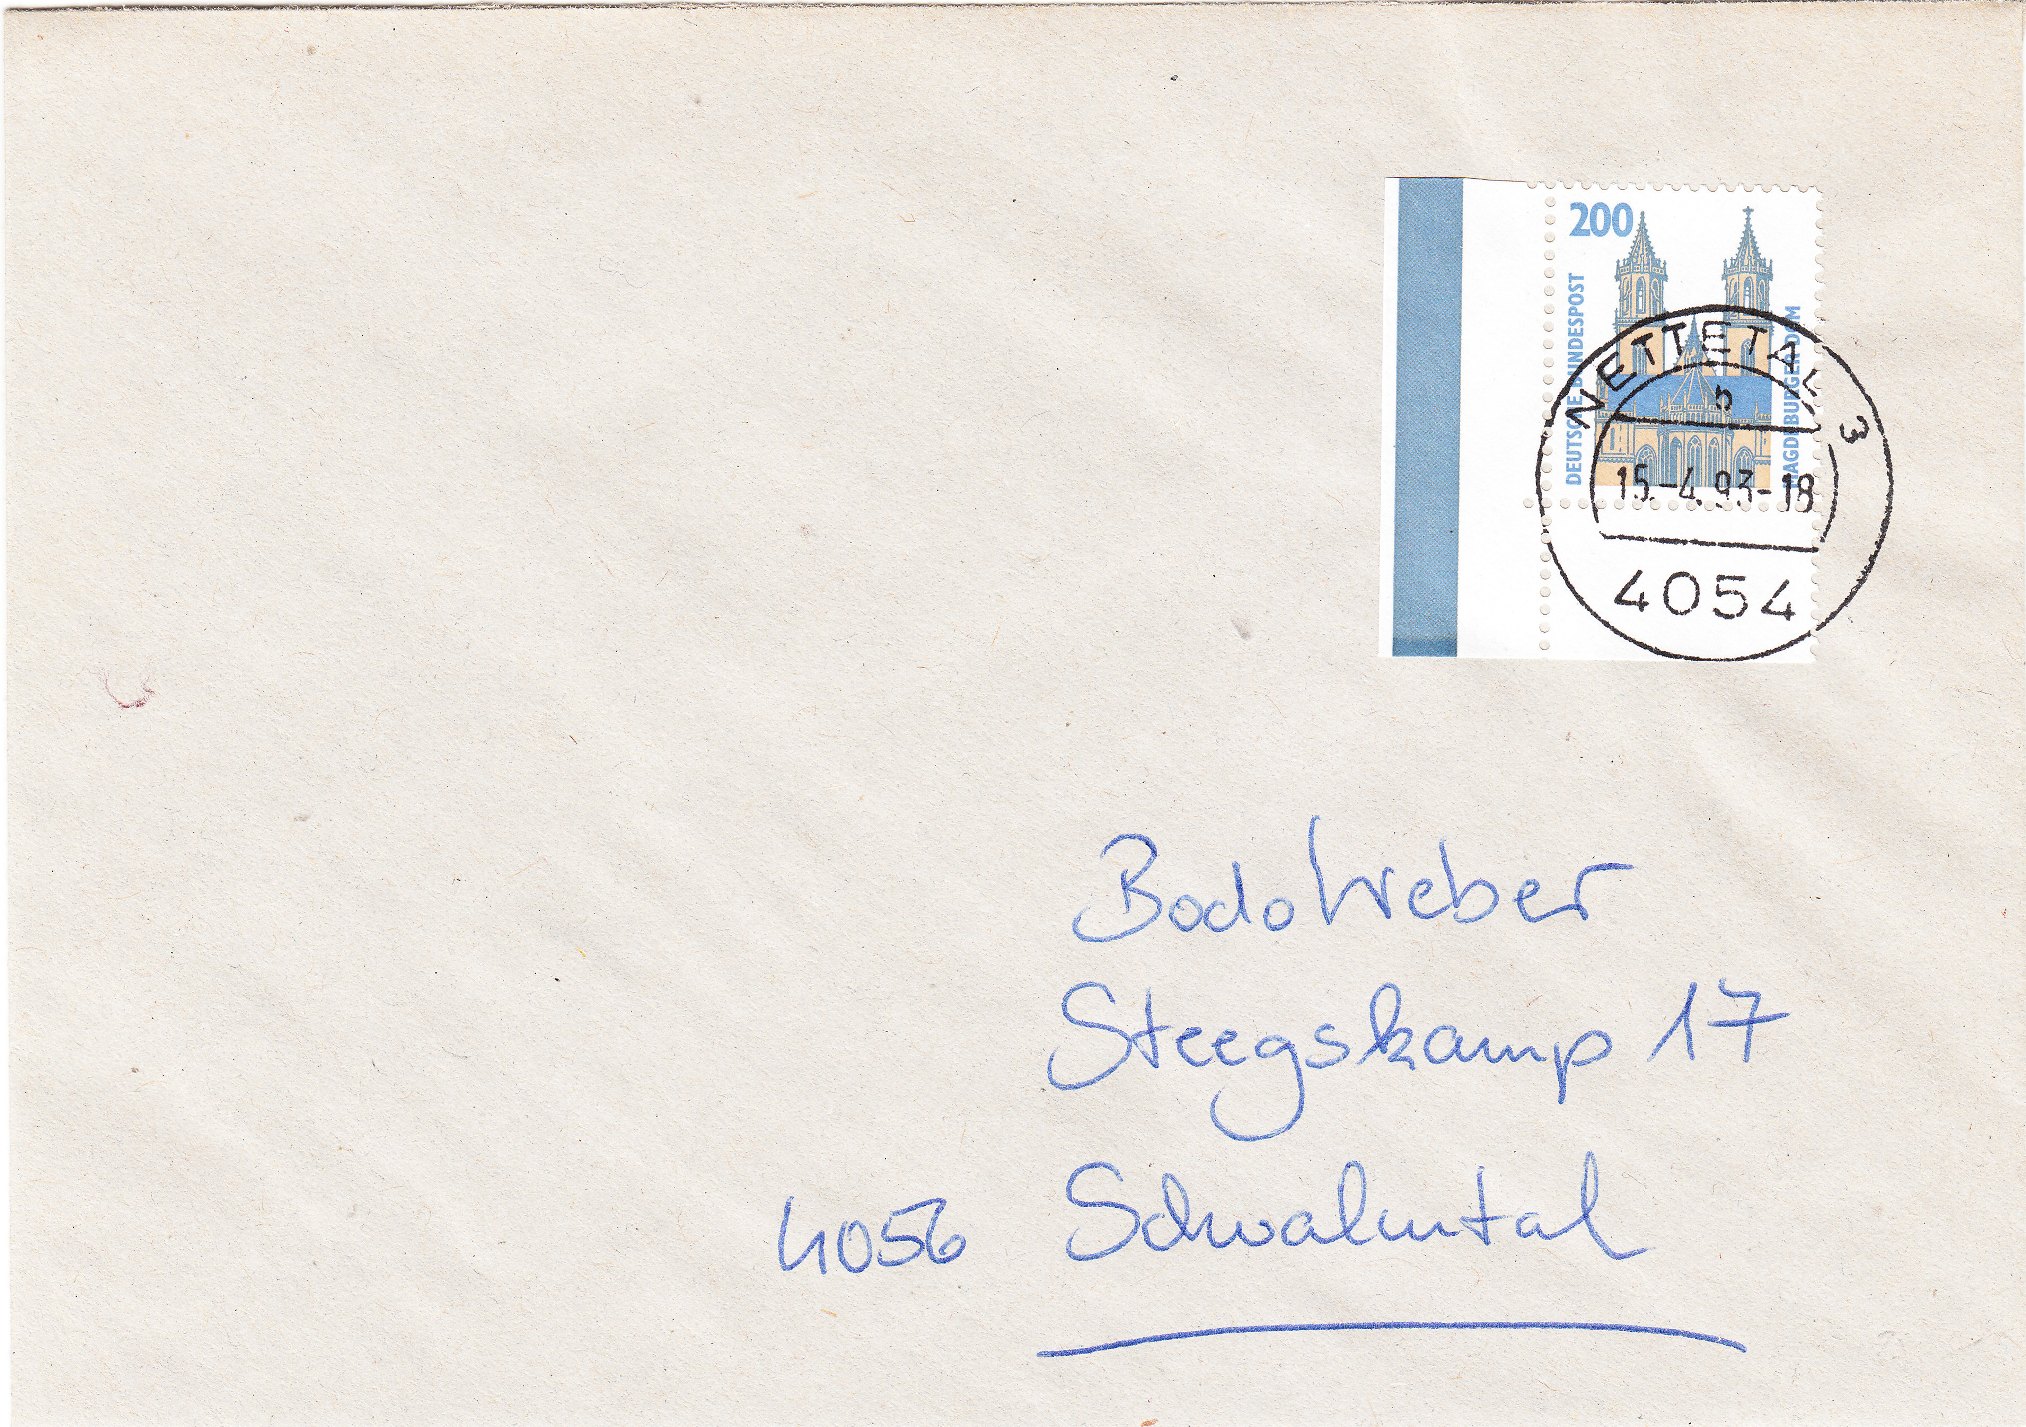 200
DEUTSCHE BUNDESPOST
MAGDEBURGER DOM
NETTETAL 3
b
15.-4.93-18
4054
Bodo Weber
Steegskamp 17
4056 Schwalmtal